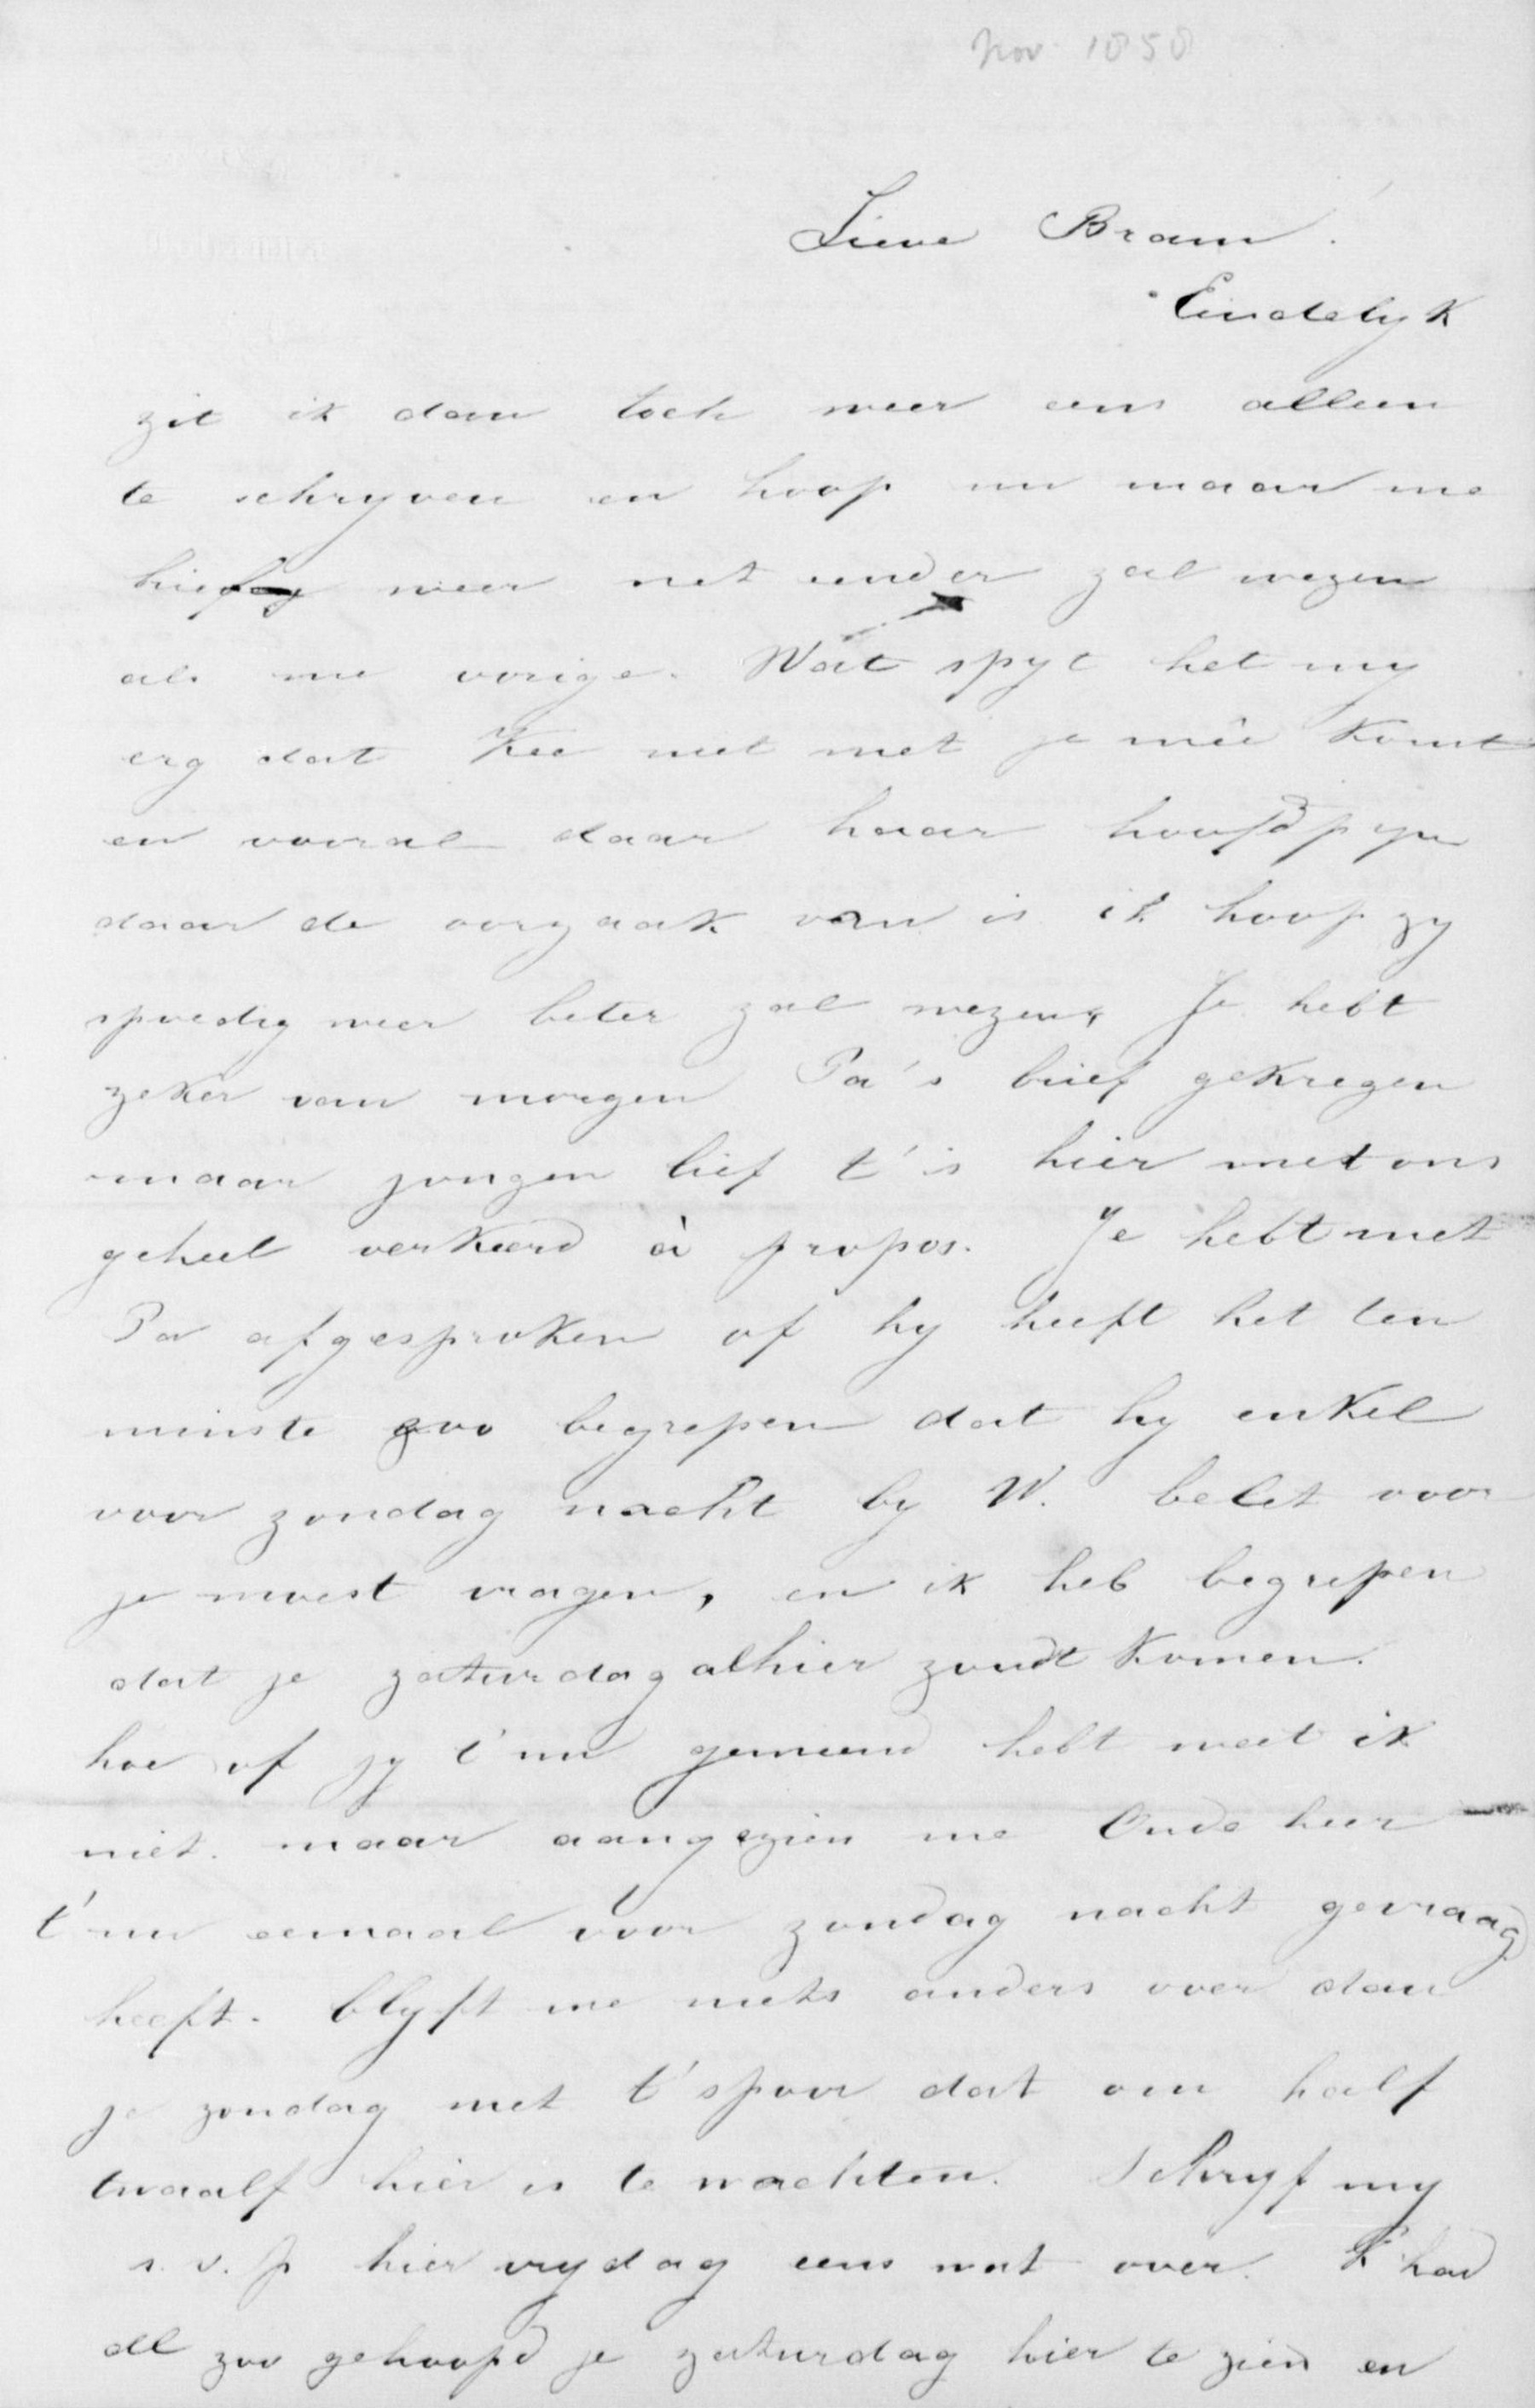 Nov. 1858
Lieve Bram!
Eindelyk
zit ik dan toch weer eens alleen
te schryven en hoop nu maar me
weer net eender zal wezen
als me vorige. Wat spyt het my
erg dat Kee niet met je mêe komt
en vooral daar haar hoofdpyn
daar de oorzaak van is ik hoop zy
spoedig weer beter zal wezen, Je hebt
zeker van morgen Pa's brief gekregen
maar jongen lief t'is hier met ons
geheel verkeerd à propos. Je hebt met
Pa afgesproken of hy heeft het ten
minste zoo begrepen dat hy enkel
voor zondag nacht by W. belet voor
je moest vragen, en ik heb begrepen
dat je zaturdag alhier zoudt komen.
hoe of jy t'nu gemeend hebt weet ik
niet. maar aangezien me Oude heer
t'nu eemaal voor zondag nacht gevraagd
heeft. blyft me niets anders over dan
je zondag met t'spoor dat om half
twaalf hier is te wachten. Schryf my
s.v.p hier vrydag eens wat over. K'had
al zoo gehoopd je zaturdag hier te zien en